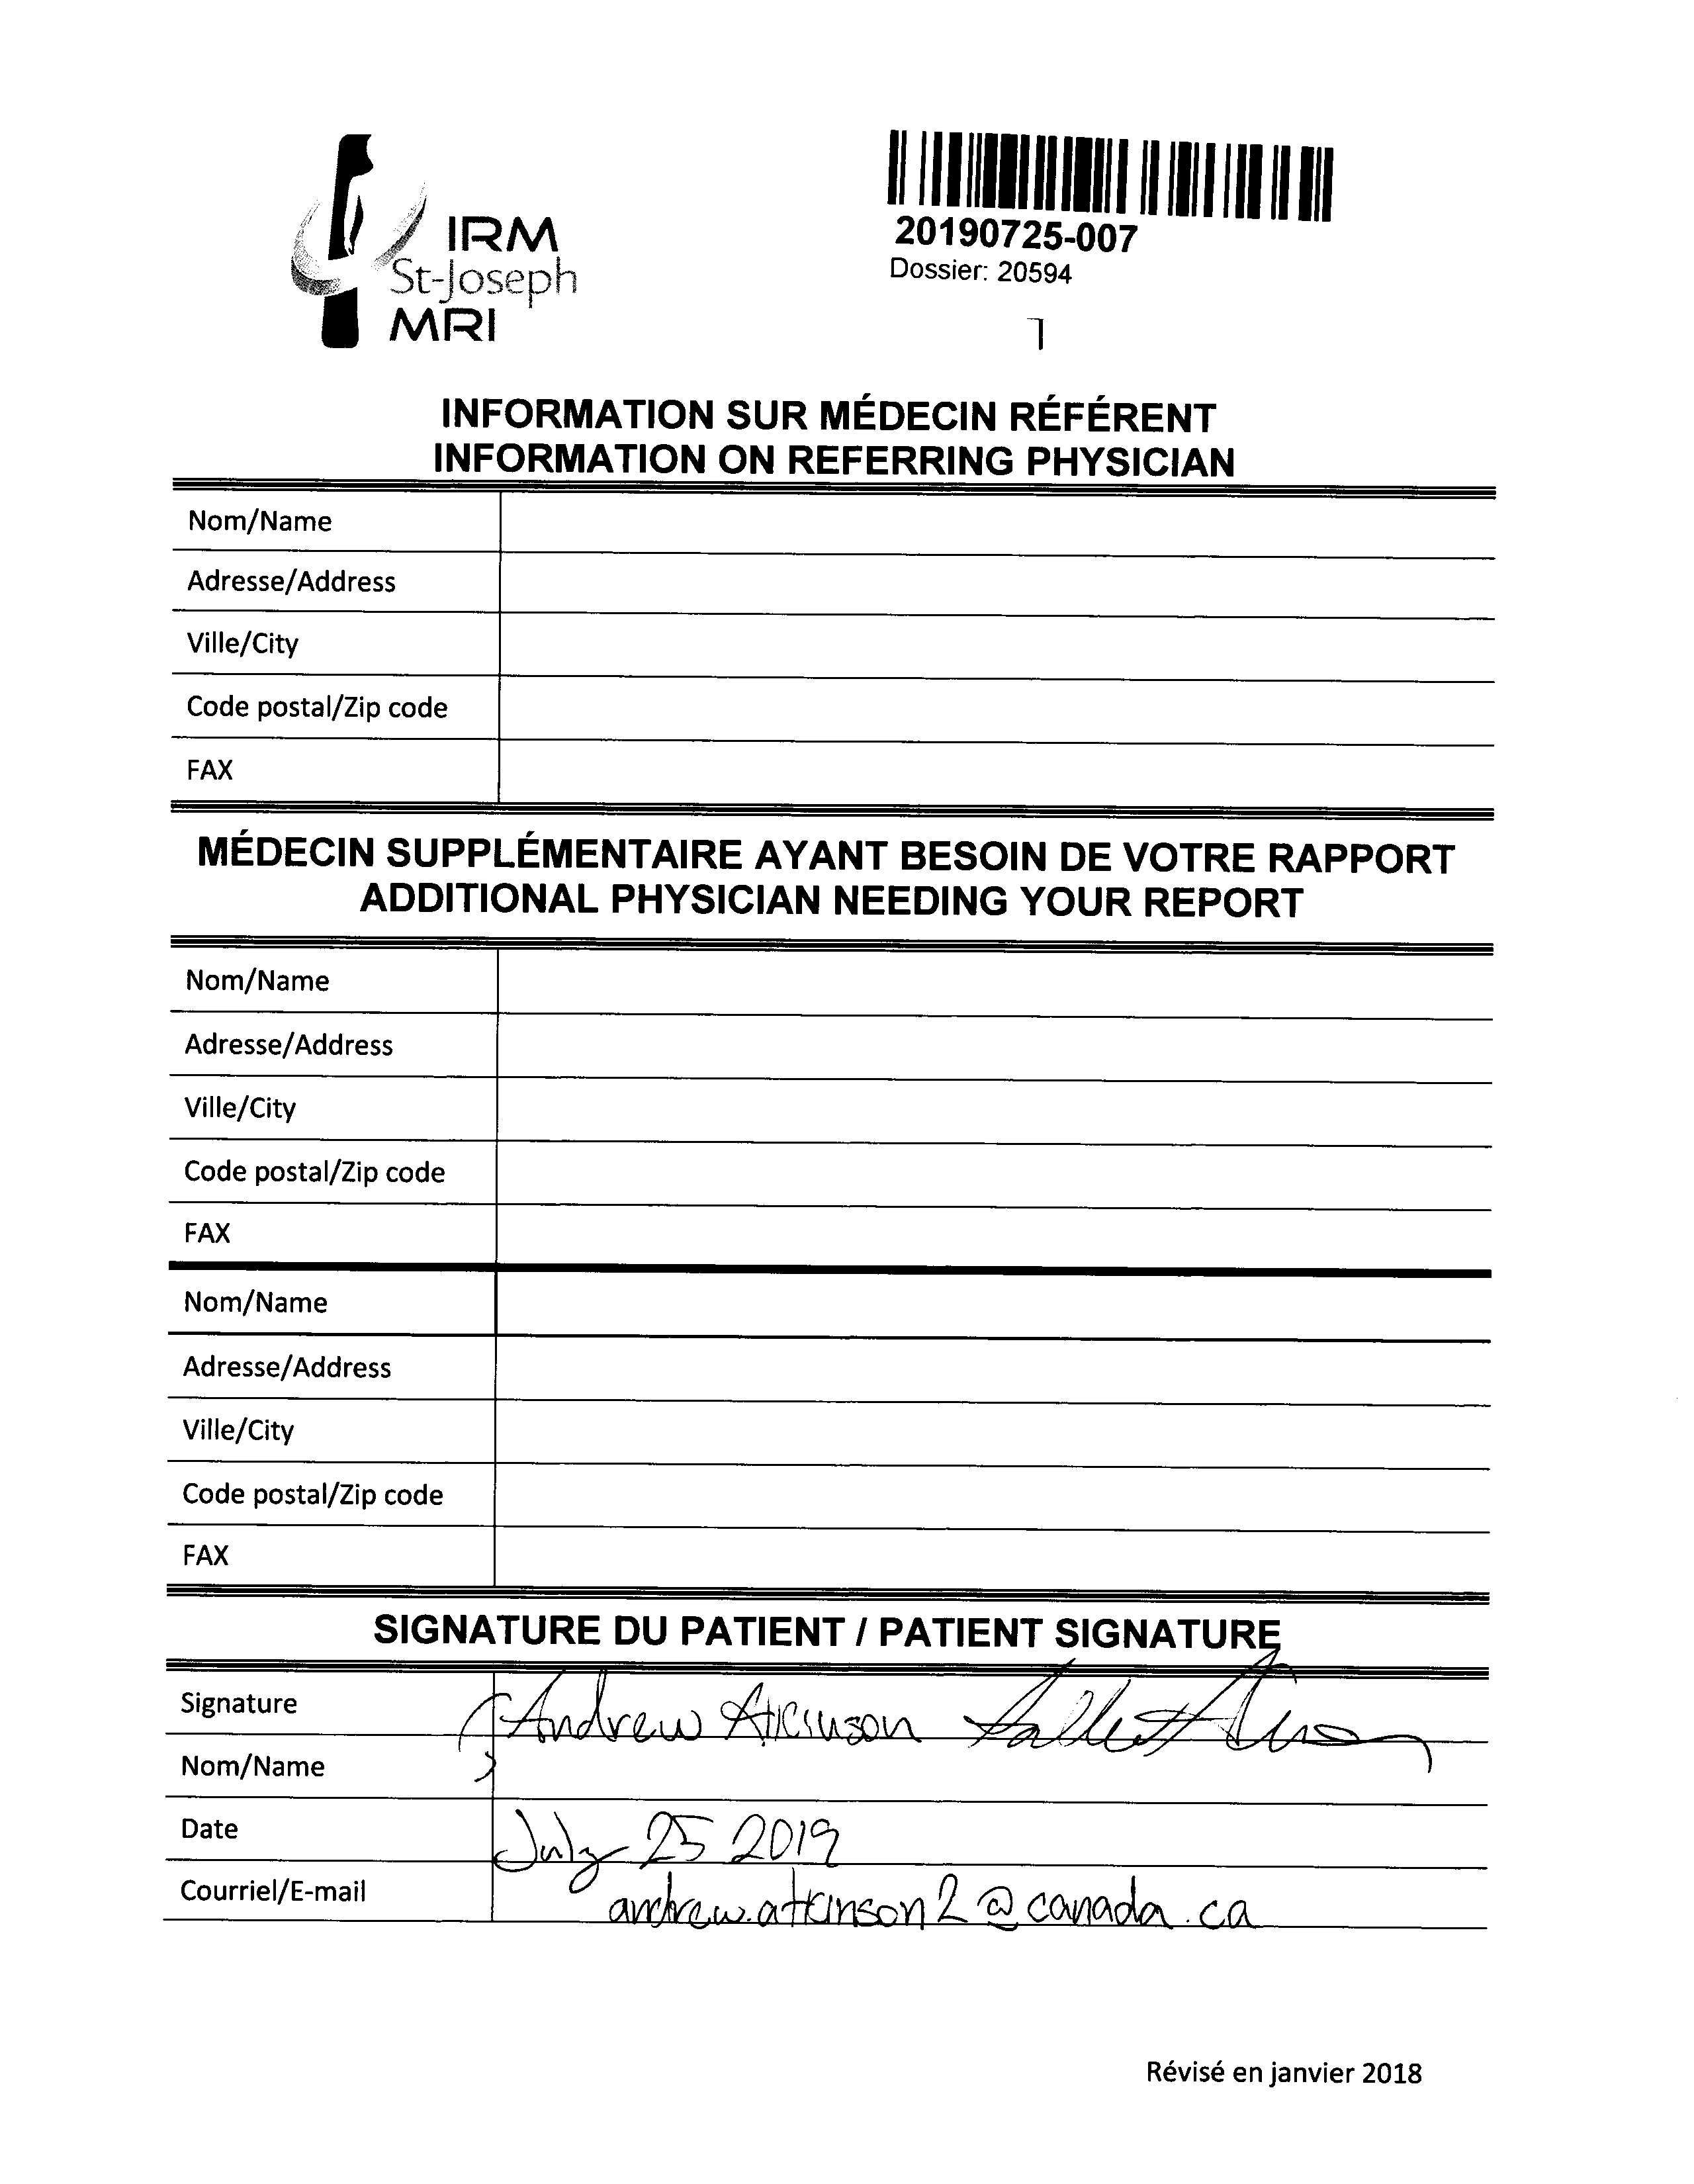 IRM
St-Joseph
MRI
20190725-007
Dossier: 20594
INFORMATION SUR MÉDECIN RÉFÉRENT
INFORMATION ON REFERRING PHYSICIAN
Nom/Name
Adresse/Address
Ville/City
Code postal/Zip code
FAX
MÉDECIN SUPPLÉMENTAIRE AYANT BESOIN DE VOTRE RAPPORT
ADDITIONAL PHYSICIAN NEEDING YOUR REPORT
Nom/Name
Adresse/Address
Ville/City
Code postal/Zip code
FAX
Nom/Name
Adresse/Address
Ville/City
Code postal/Zip code
FAX
SIGNATURE DU PATIENT / PATIENT SIGNATURE
Signature Andrew Atkinson
Nom/Name
Date July 25 2019
Courriel/E-mail andrew.atkinson2@canada.ca
Révisé en janvier 2018